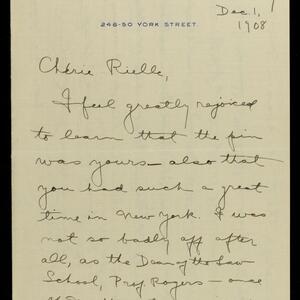 Dec. 1,
1908
246-50 YORK STREET.
Chérie Rielle,
I feel greatly rejoiced
to learn that the pin
was yours – also that
you had such a great
time in New York. I was
not so badly off after
all, as the Dean of the Law
School, Prof. Rogers – once